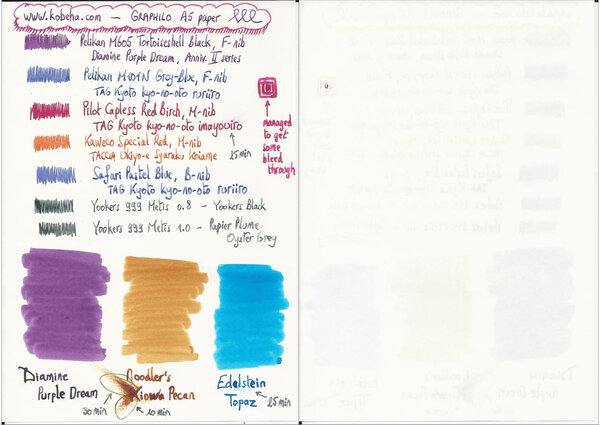 www.kobeha.com – GRAPHILO A5 paper
Pelikan M605 Tortoiseshell Black, F-nib
Diamine Purple Dream, Anniv. II series
Pelikan M101N Grey-Blue, F-nib
TAG Kyoto kyo-no-oto ruriiro
Pilot Capless Red Birch, M-nib
TAG Kyoto kyo-no-oto imayouiro
Kaweco Special Red, M-nib
TACCIA Ukiyo-e Syaraku Koiame
25min
Safari Pastel Blue, B-nib
TAG Kyoto kyo-no-oto ruriiro
Yookers 999 Metis 0.8 – Yookers Black
Yookers 999 Metis 1.0 – Papier Plume
Oyster Grey
managed
to get
some
bleed
through
Diamine
Purple Dream
30 min
Noodler's
Kiowa Pecan
10 min
Edelstein
Topaz
25min